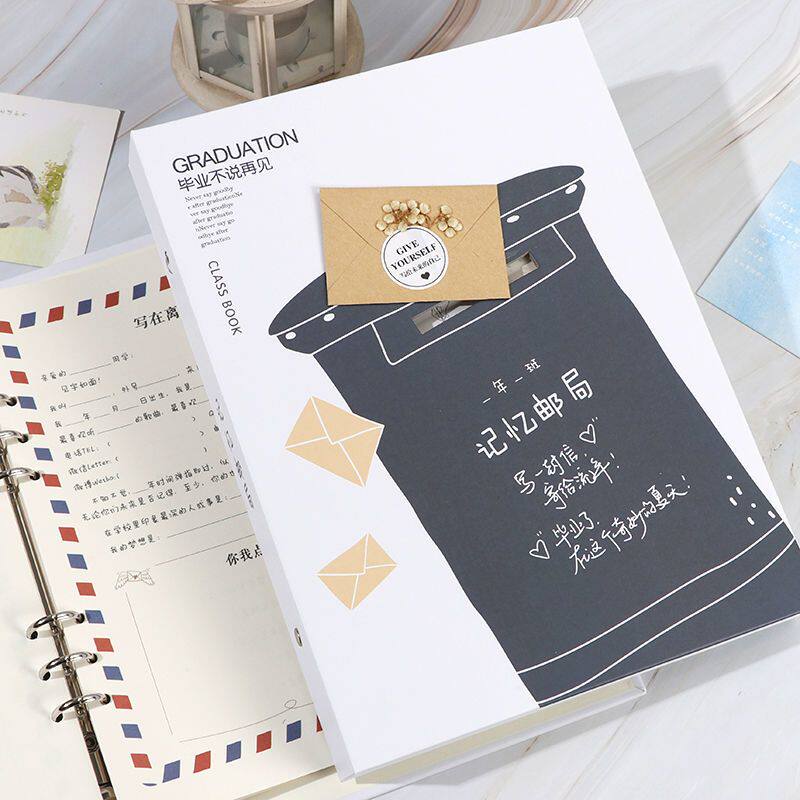 GRADUATION
毕业不说再见
Never say goodby
e after graduationNe
ver say goodbye
after graduatio
nNever say go
odbye after
graduation
CLASS BOOK
GIVE
YOURSELF
写给未来的自己
一年一班
记忆邮局
写一封信
寄给流年！
毕业了，
在这个奇妙的夏天！
写在离
亲爱的 同学：
见字如面！
我叫 ，外号 ，来
年 月 日出生，我是
最喜欢听 的歌曲，最喜欢
电话TEL：（ ）
微信Letter：（
微博Weibo：（
不知不觉， 年时间弹指即过，似
无论你们未来是否记得，至少，你的
在学校里印象最深的人或事是：
我的梦想是：
你我点